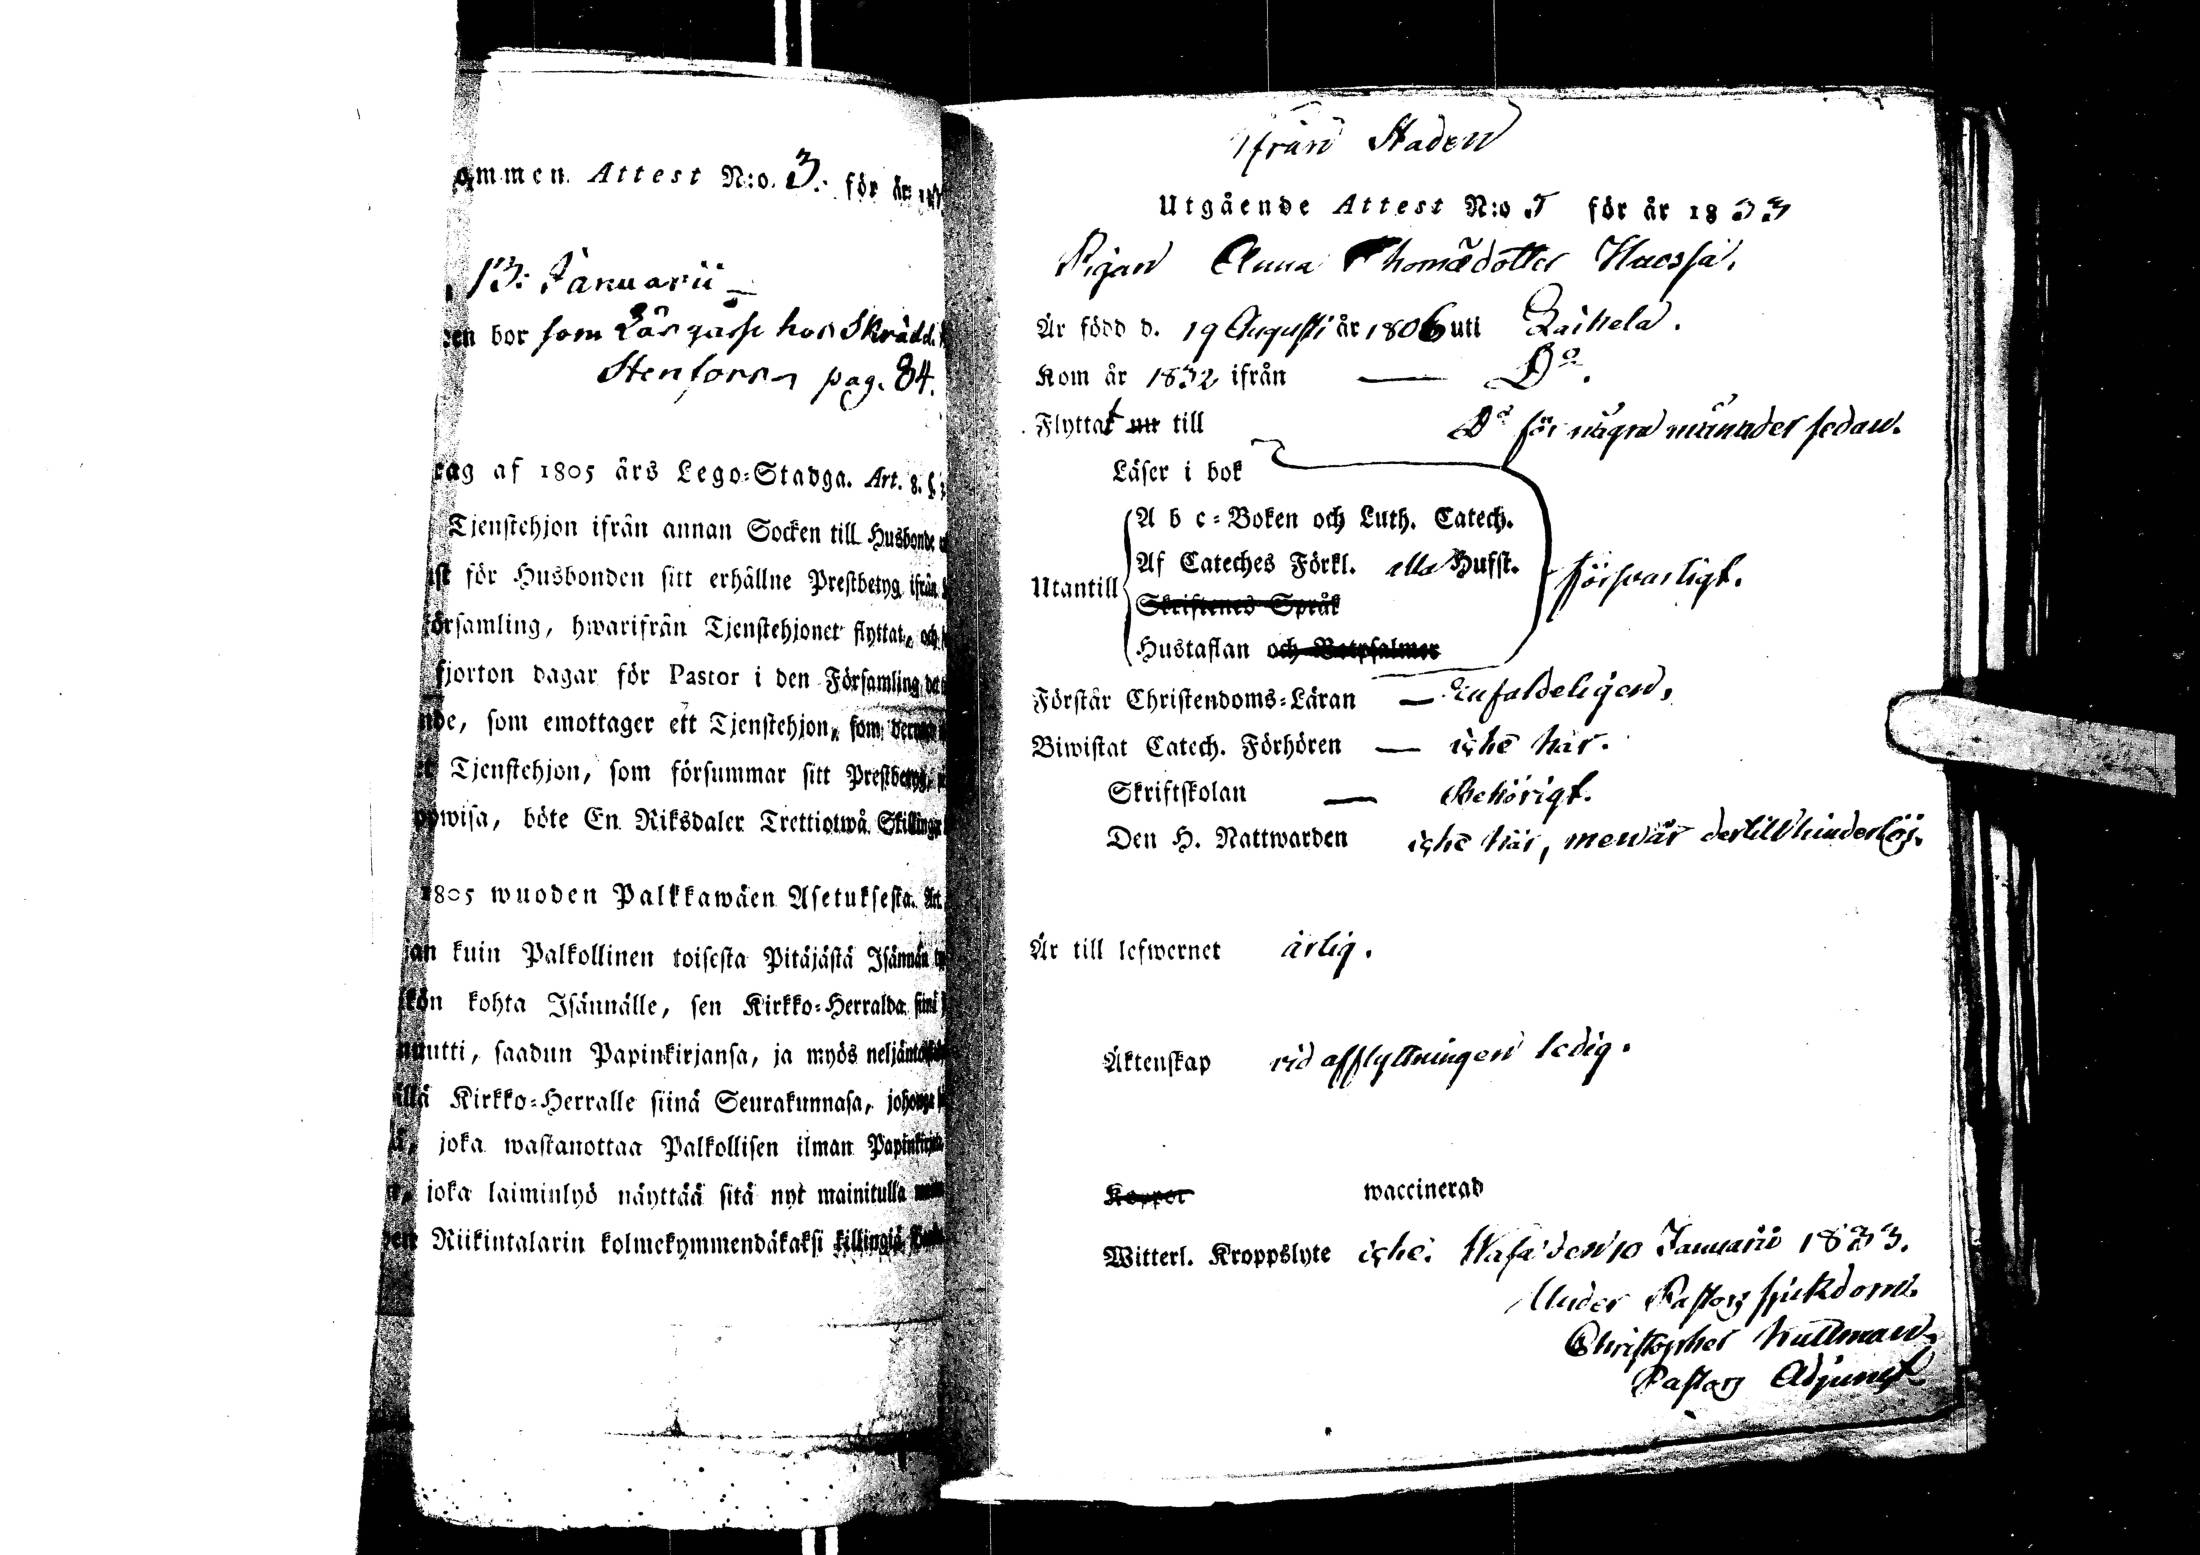 ommen Attest N:o. 3. för år
13: Januarii
en bor som Lärgåsse hos Skrädd.
Stenforss pag. 84.
rag af 1805 års Lego-Stadga. Art. 8. §.
Tjenstehjon ifrån annan Socken till Husbonde
för Husbonden sitt erhållne Prestbetyg ifrån
örsamling, hwarifrån Tjenstehjonet flyttat, och
fjorton dagar för Pastor i den Församling
nde, som emottager ett Tjenstehjon, som
Tjenstehjon, som försummar sitt Prestbetyg,
ppwisa, böte En Riksdaler Trettiotwå Skillingar
1805 wuoden Palkkawäen Asetuksesta. Art.
jan kuin Palkollinen toisesta Pitäjästä Isännän
kön kohta Isännälle, sen Kirkko-Herralda siinä
muutti, saadun Papinkirjansa, ja myös
ällä Kirkko-Herralle siinä Seurakunnasa,
joka wastanottaa Palkollisen ilman
joka laiminlyö näyttää sitä nyt mainitulla
Riikintalarin kolmekymmendäkaksi killingiä
Ifrån Staden
Utgående Attest N:o 5 för år 1833
Pigan Anna Thomædotter
Är född d. 19 Augusti år 1806 uti Laihela.
Kom år 1832 ifrån — Do.
Flyttat nu till Do för några månader sedan.
Läser i bok
A b c-Boken och Luth. Catech.
Af Cateches Förkl. alla Hufst.
Utantill försvarligt.
Skriftenes Språk
Hustaflan och Botpsalmer
Förstår Christendoms-Läran — Enfaldeligen.
Biwistat Catech. Förhören — icke här.
Skriftskolan — Behörigt.
Den H. Nattwarden icke här, men är dertill hinderlös.
Är till lefwernet ärlig.
Äktenskap vid afflyttningen ledig.
Koppor waccinerad
Witterl. Kroppslyte icke. Wasa den 10 Januarii 1833.
Under Pastors sjukdom.
Christopher
Pastors Adjunct.